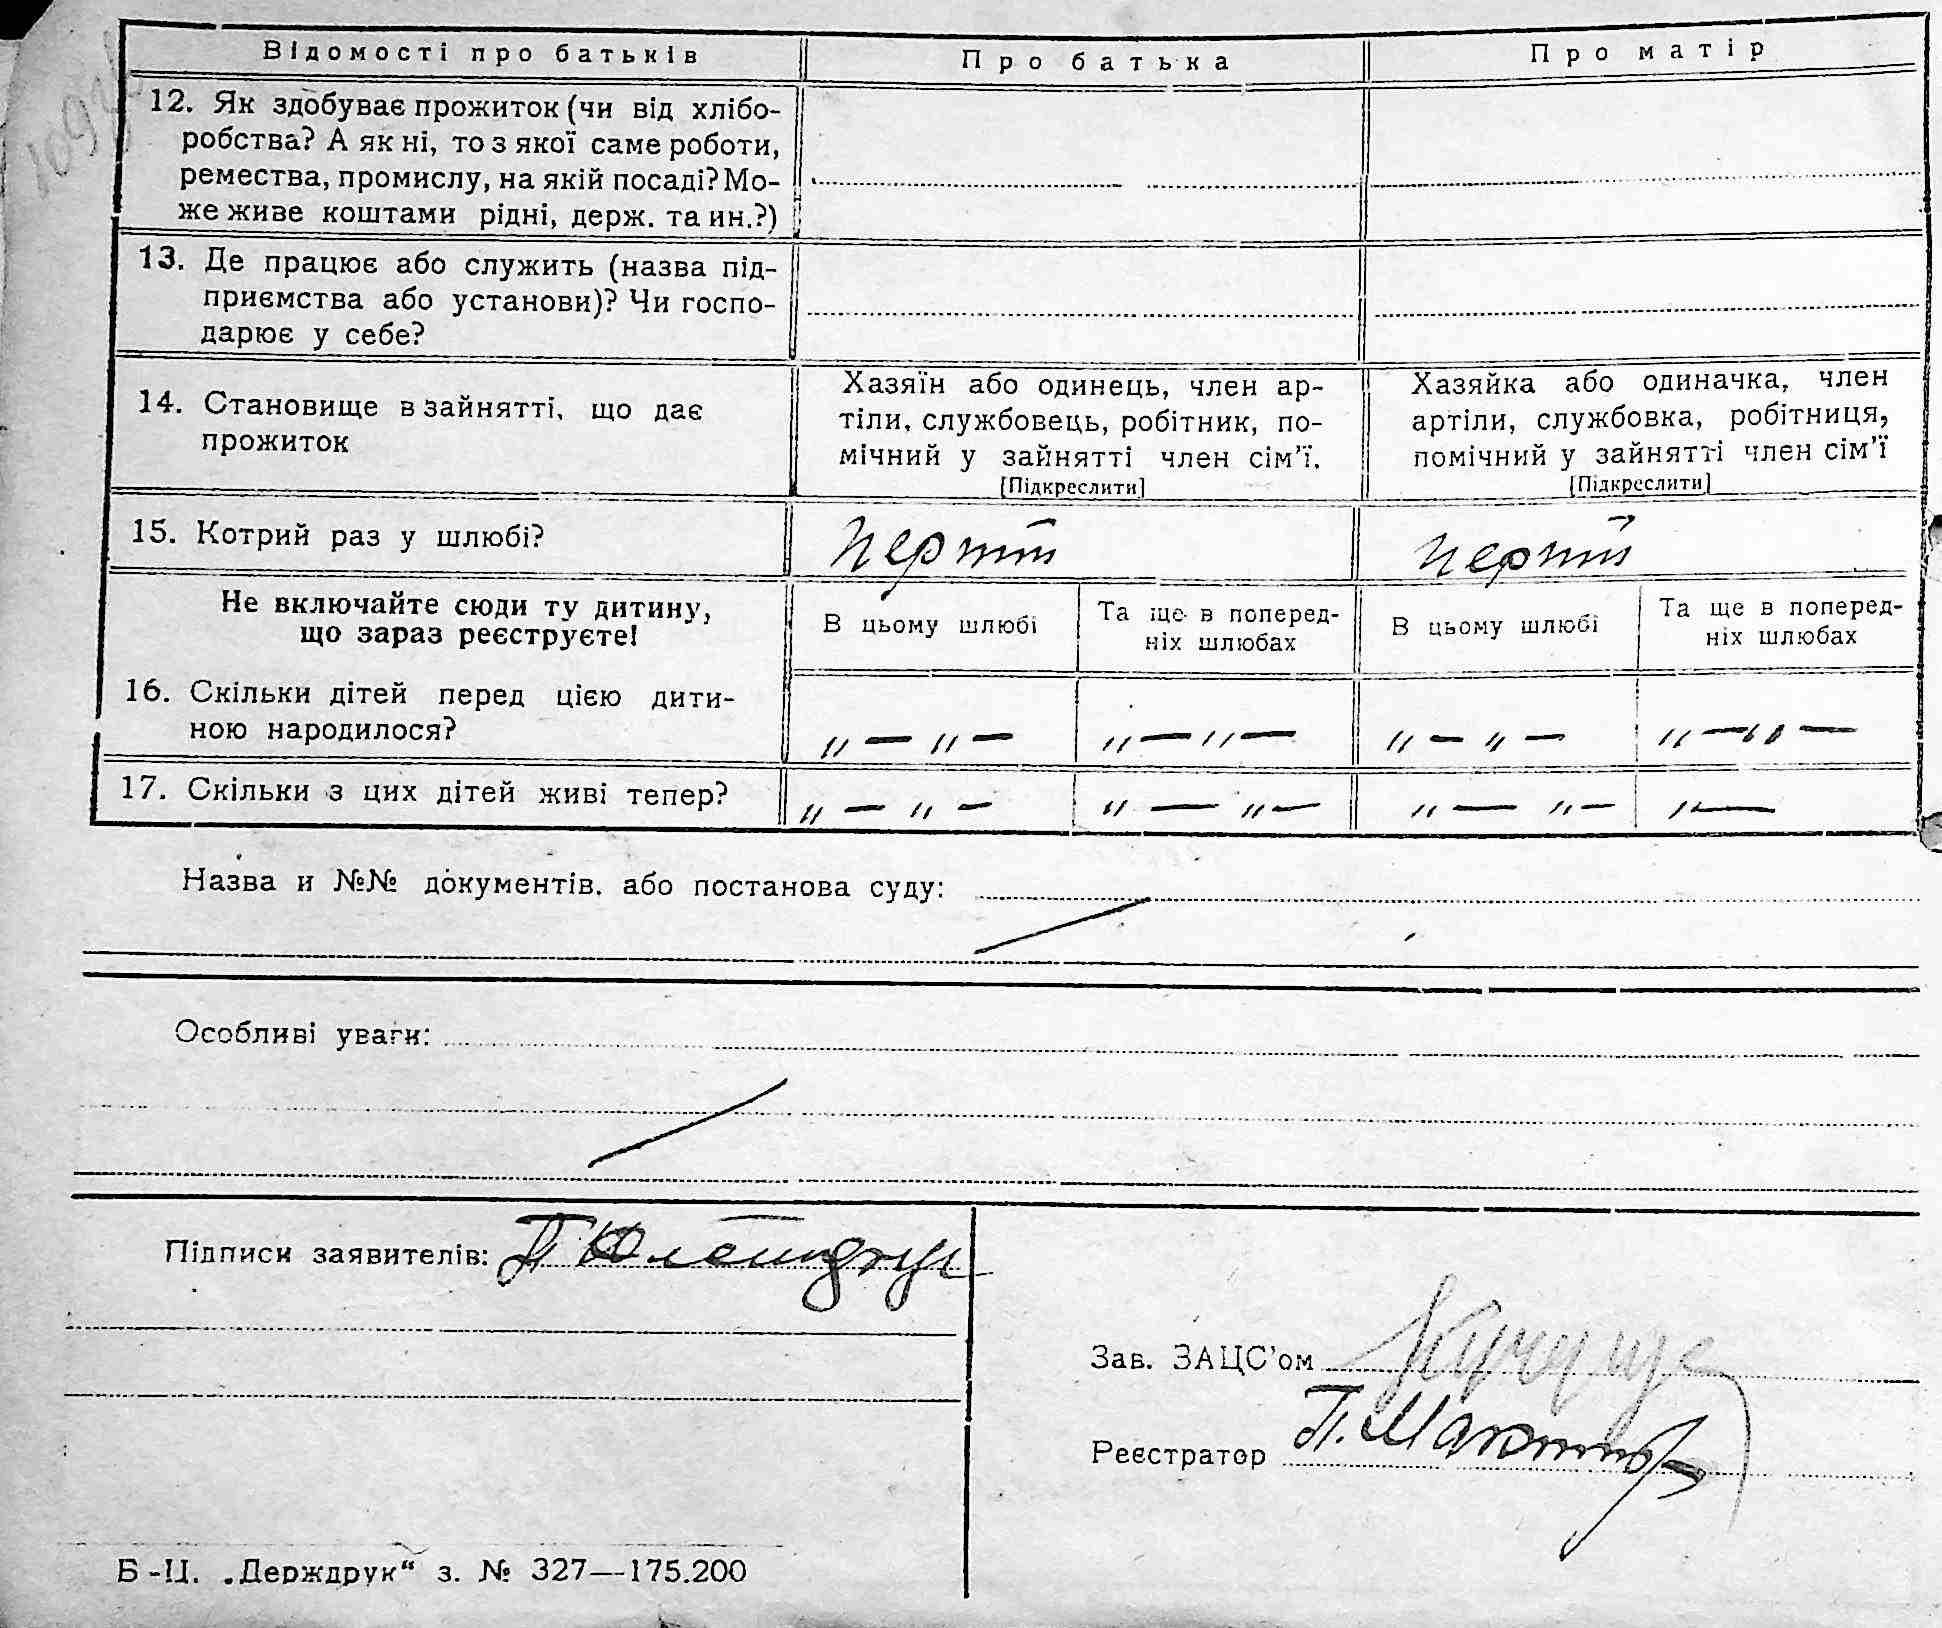 Відомості про батьків
Про батька
Про матір
12. Як здобуває прожиток (чи від хлібо-
робства? А як ні, то з якої саме роботи,
ремества, промислу, на якій посаді? Мо-
же живе коштами рідні, держ. та ин.?)
13. Де працює або служить (назва під-
приємства або установи)? Чи госпо-
дарює у себе?
14. Становище в зайнятті, що дає
прожиток
Хазяїн або одинець, член ар-
тіли, службовець, робітник, по-
мічний у зайнятті член сім’ї.
[Підкреслити]
Хазяйка або одиначка, член
артіли, службовка, робітниця,
помічний у зайнятті член сім’ї
[Підкреслити]
15. Котрий раз у шлюбі?
Не включайте сюди ту дитину,
що зараз реєструєте!
В цьому шлюбі
Та ще в поперед-
ніх шлюбах
В цьому шлюбі
Та ще в поперед-
ніх шлюбах
16. Скільки дітей перед цією дити-
ною народилося?
„ — „ —
„ — „ —
„ — „ —
„ — „ —
17. Скільки з цих дітей живі тепер?
„ — „ —
„ — „ —
„ — „ —
„ —
Назва и №№ документів. або постанова суду:
Особливі уваги:
Підписи заявителів:
Зав. ЗАЦС’ом
Реєстратор П.
Б-Ц. „Держдрук“ з. № 327—175.200